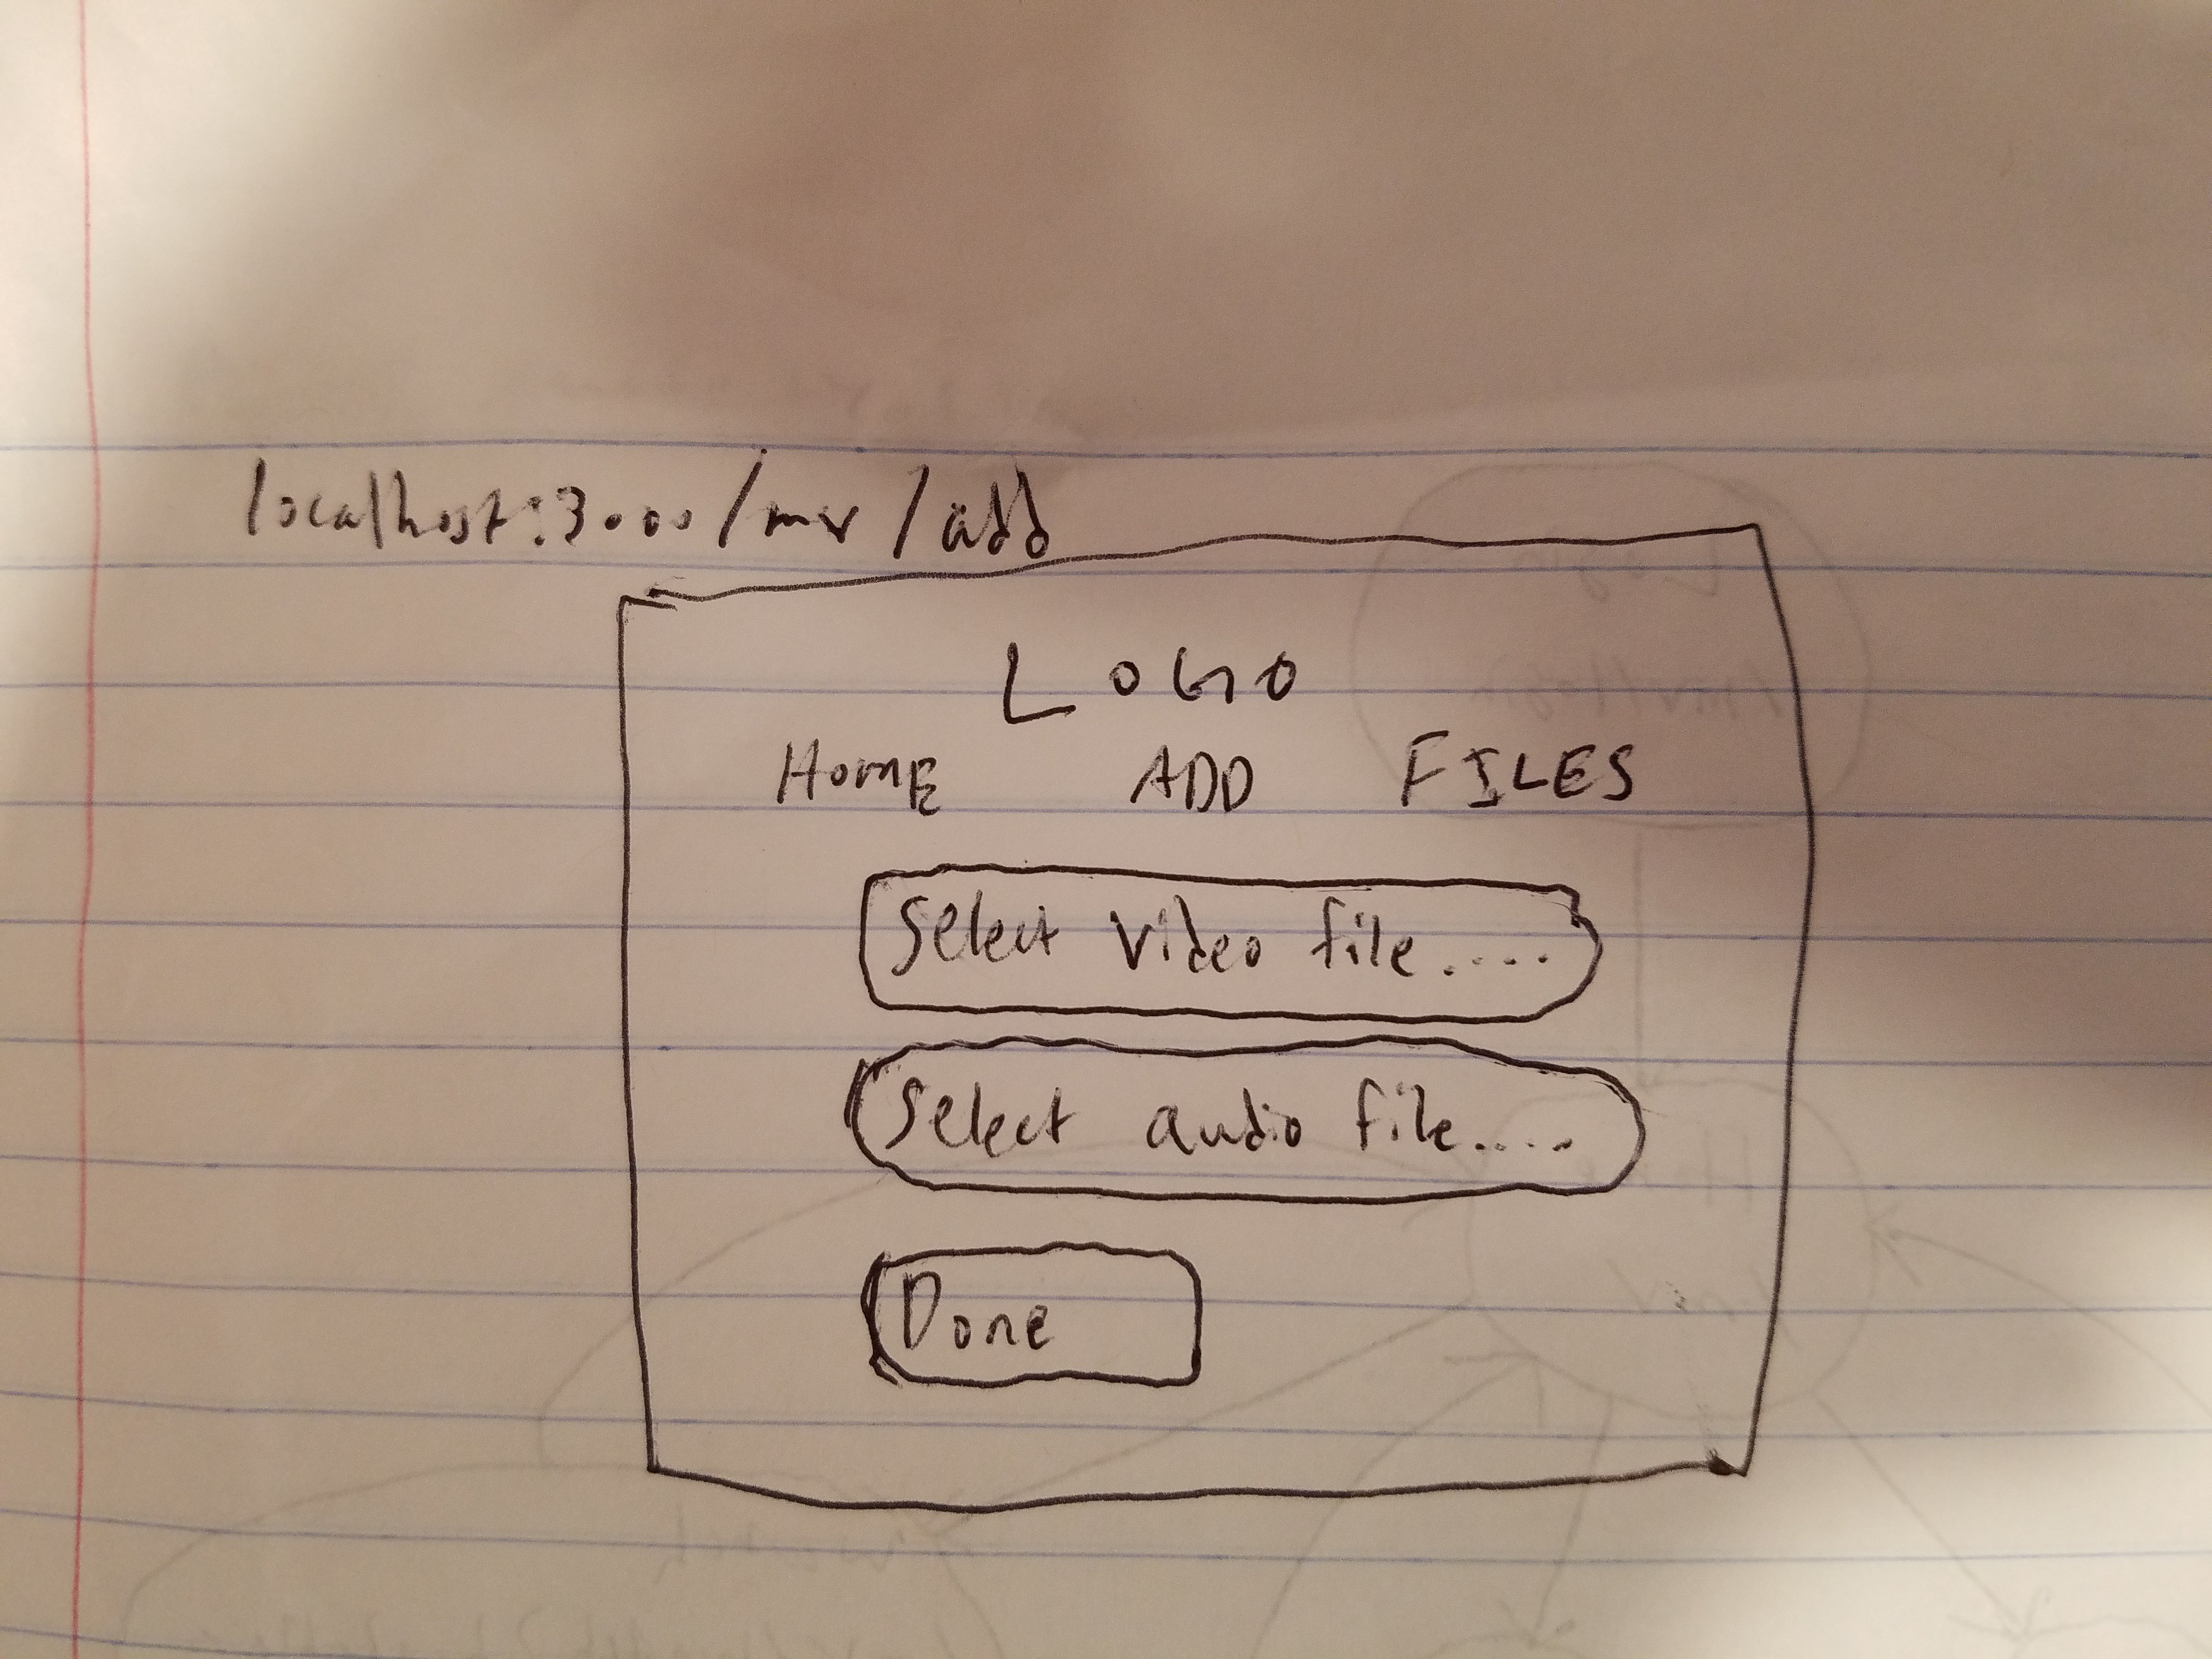 localhost:3000/mv/add
LOGO
HOME ADD FILES
Select video file.....
Select audio file.....
Done